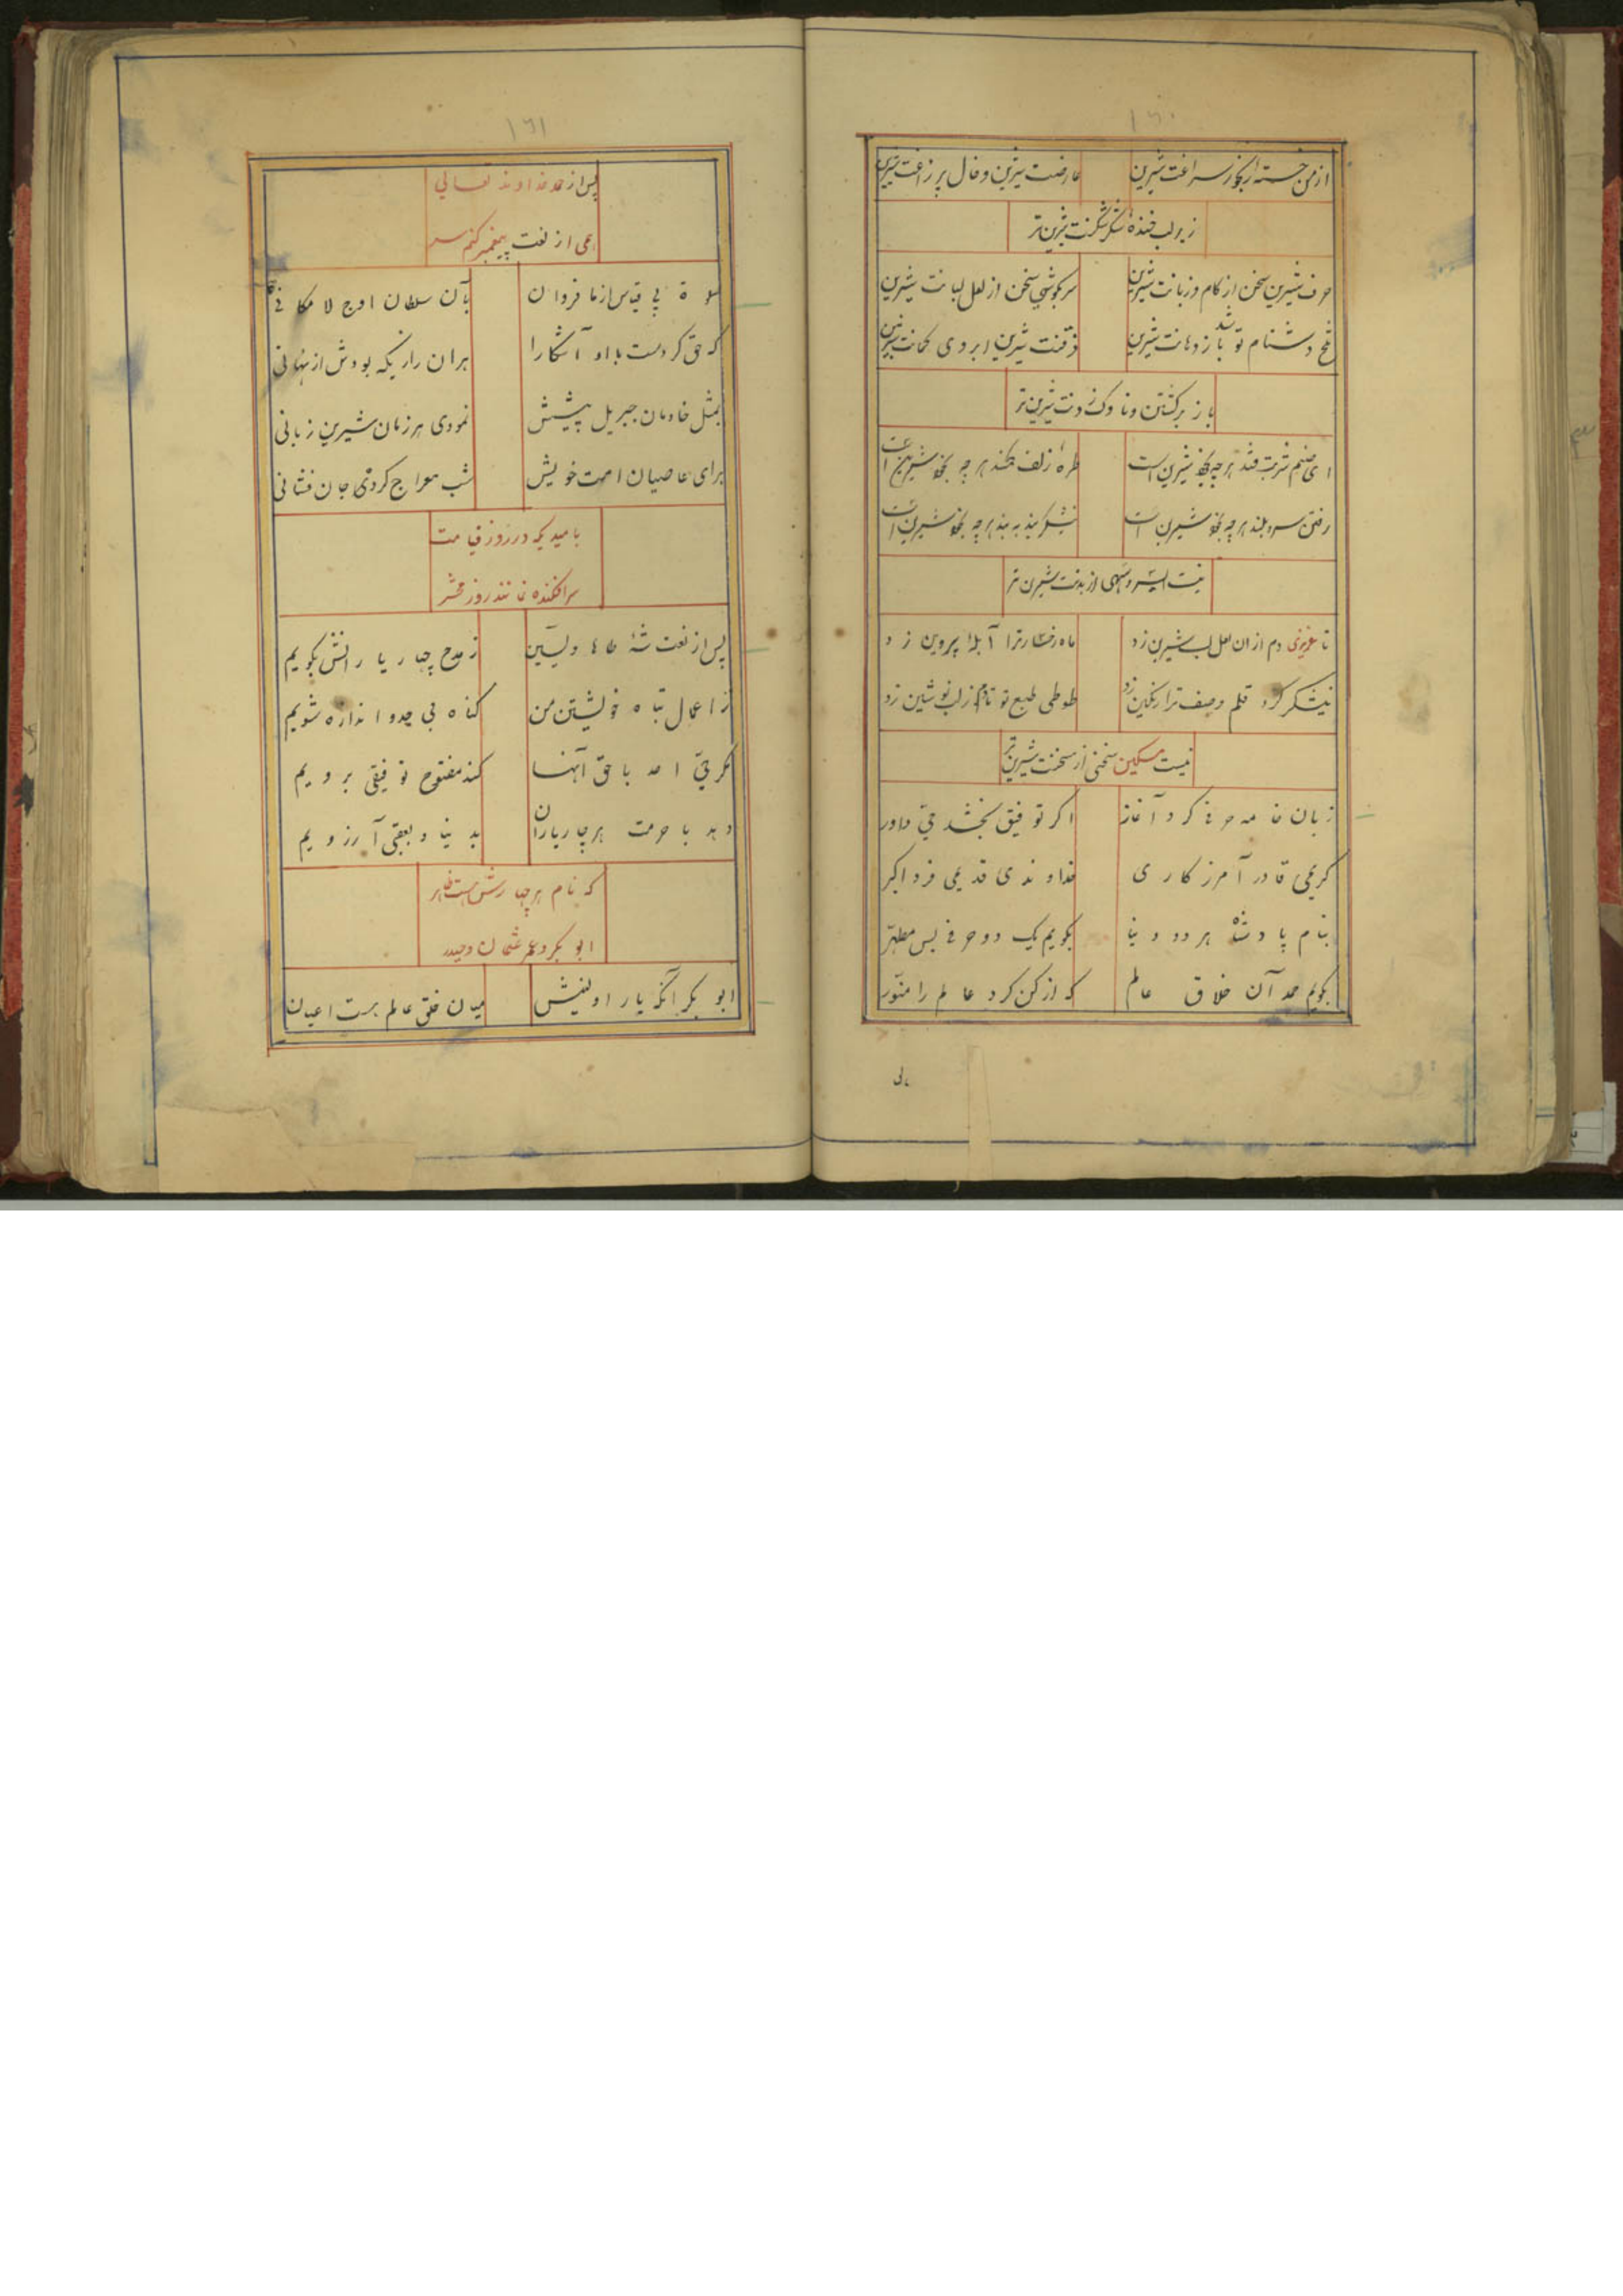 ۱۶۰
از من خسته سراغت شیرین عارضت شیرین و خال پر زاغت شیرین
زیر لب خندهٔ شکر شکنت شیرین تر
حرف شیرین سخن از کام و زبانت شیرین سر بکوشی سخن از لعل لبانت شیرین
تلخ دشنام تو باشد ز دهانت شیرین ذقنت شیرین ابروی کمانت شیرین
باز برکشتن و ناوک زدنت شیرین تر
ای صنم شربت قند هر چه شیرین است طرهٔ زلف کمند هر چه شیرین است
رفتن سرو بلند هر چه شیرین است نیشکر بند به بند هر چه شیرین است
نیست ای سرو سهی از بدنت شیرین تر
تا عزیزی دم از ان لعل لب شیرین زد ماه رخسار ترا آبله پروین زد
نیشکر کرد قلم وصف ترا رنکین زد طوطی طبع تو تا دم ز لب نوشین زد
نیست مسکین سخنی از سخنت شیرین تر
زبان خامه حرفی کرد آغاز اکر توفیق بخشد حق داور
کریمی قادر آمرزکاری خداوندی قدیمی فرد اکبر
بنام پادشاه هر دو دنیا بکویم یک دو حرفی بس مطهر
بکویم حمد آن خلاق عالم که از کن کرد عالم را منور
۱۶۱
پس از حمد خداوند تعالی
می از نعت پیغمبر کنم سر
صلوة بی قیاس از ما فروان بآن سلطان اوج لا مکانی
که حق کردست با او آشکارا هران رازیکه بودش از نهانی
بمثل خادمان جبریل پیشش نمودی هر زمان شیرین زبانی
برای عاصیان امت خویش شب معراج کردی جان فشانی
بامیدیکه در روز قیامت
سرافکنده نمانند روز محشر
پس از نعت شه طاها و یسین ز مدح چهار یارانش بکویم
ز اعمال تباه خویشتن من کناه بی حد و اندازه شویم
مکر حق احد با حق آنها کند مفتوح توفیقی برویم
دهد با حرمت هر چاریاران بدنیا و بعقبی آرزویم
که نام هر چهارش هست ظاهر
ابوبکر و عمر عثمان و حیدر
ابوبکر آنکه یار اولینش میان خلق عالم هست اعیان